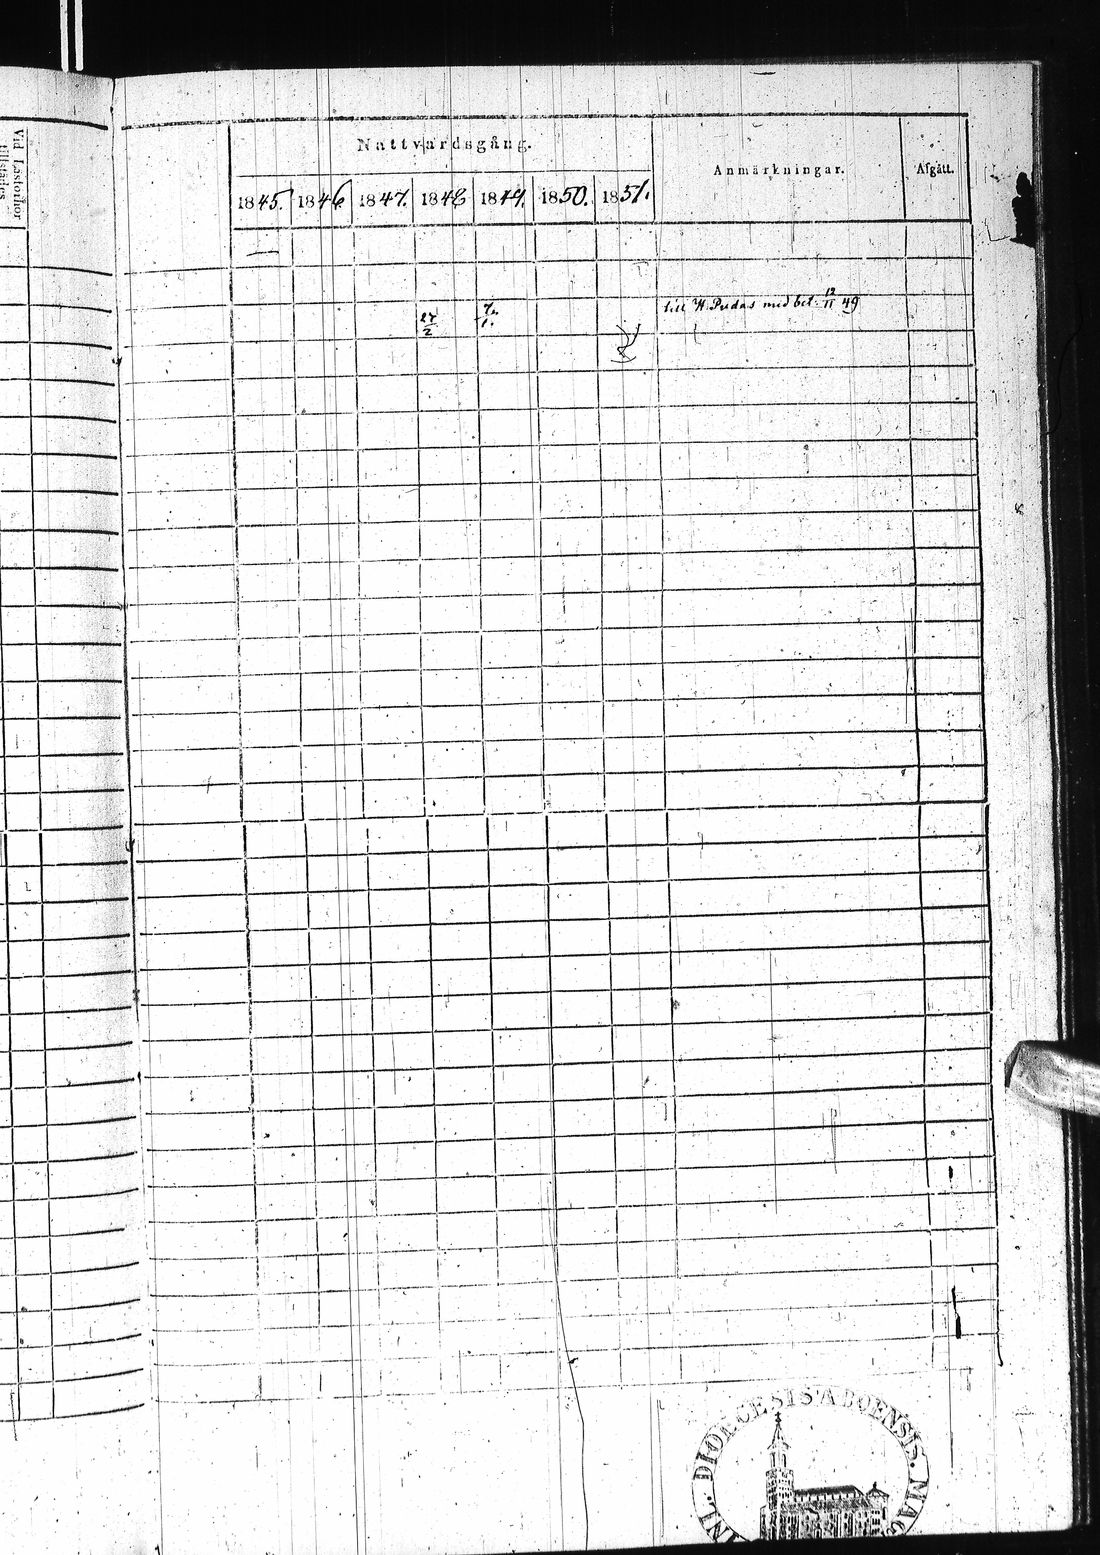 Vid Läseförhör
tillstädes
Nattvardsgång.
Anmärkningar.
Afgått.
1845. 1846. 1847. 1848 1849. 1850. 1851.
27/2
till H. Pudas med bet. 12/11 49
DIOECESIS ABOENSIS. MAG